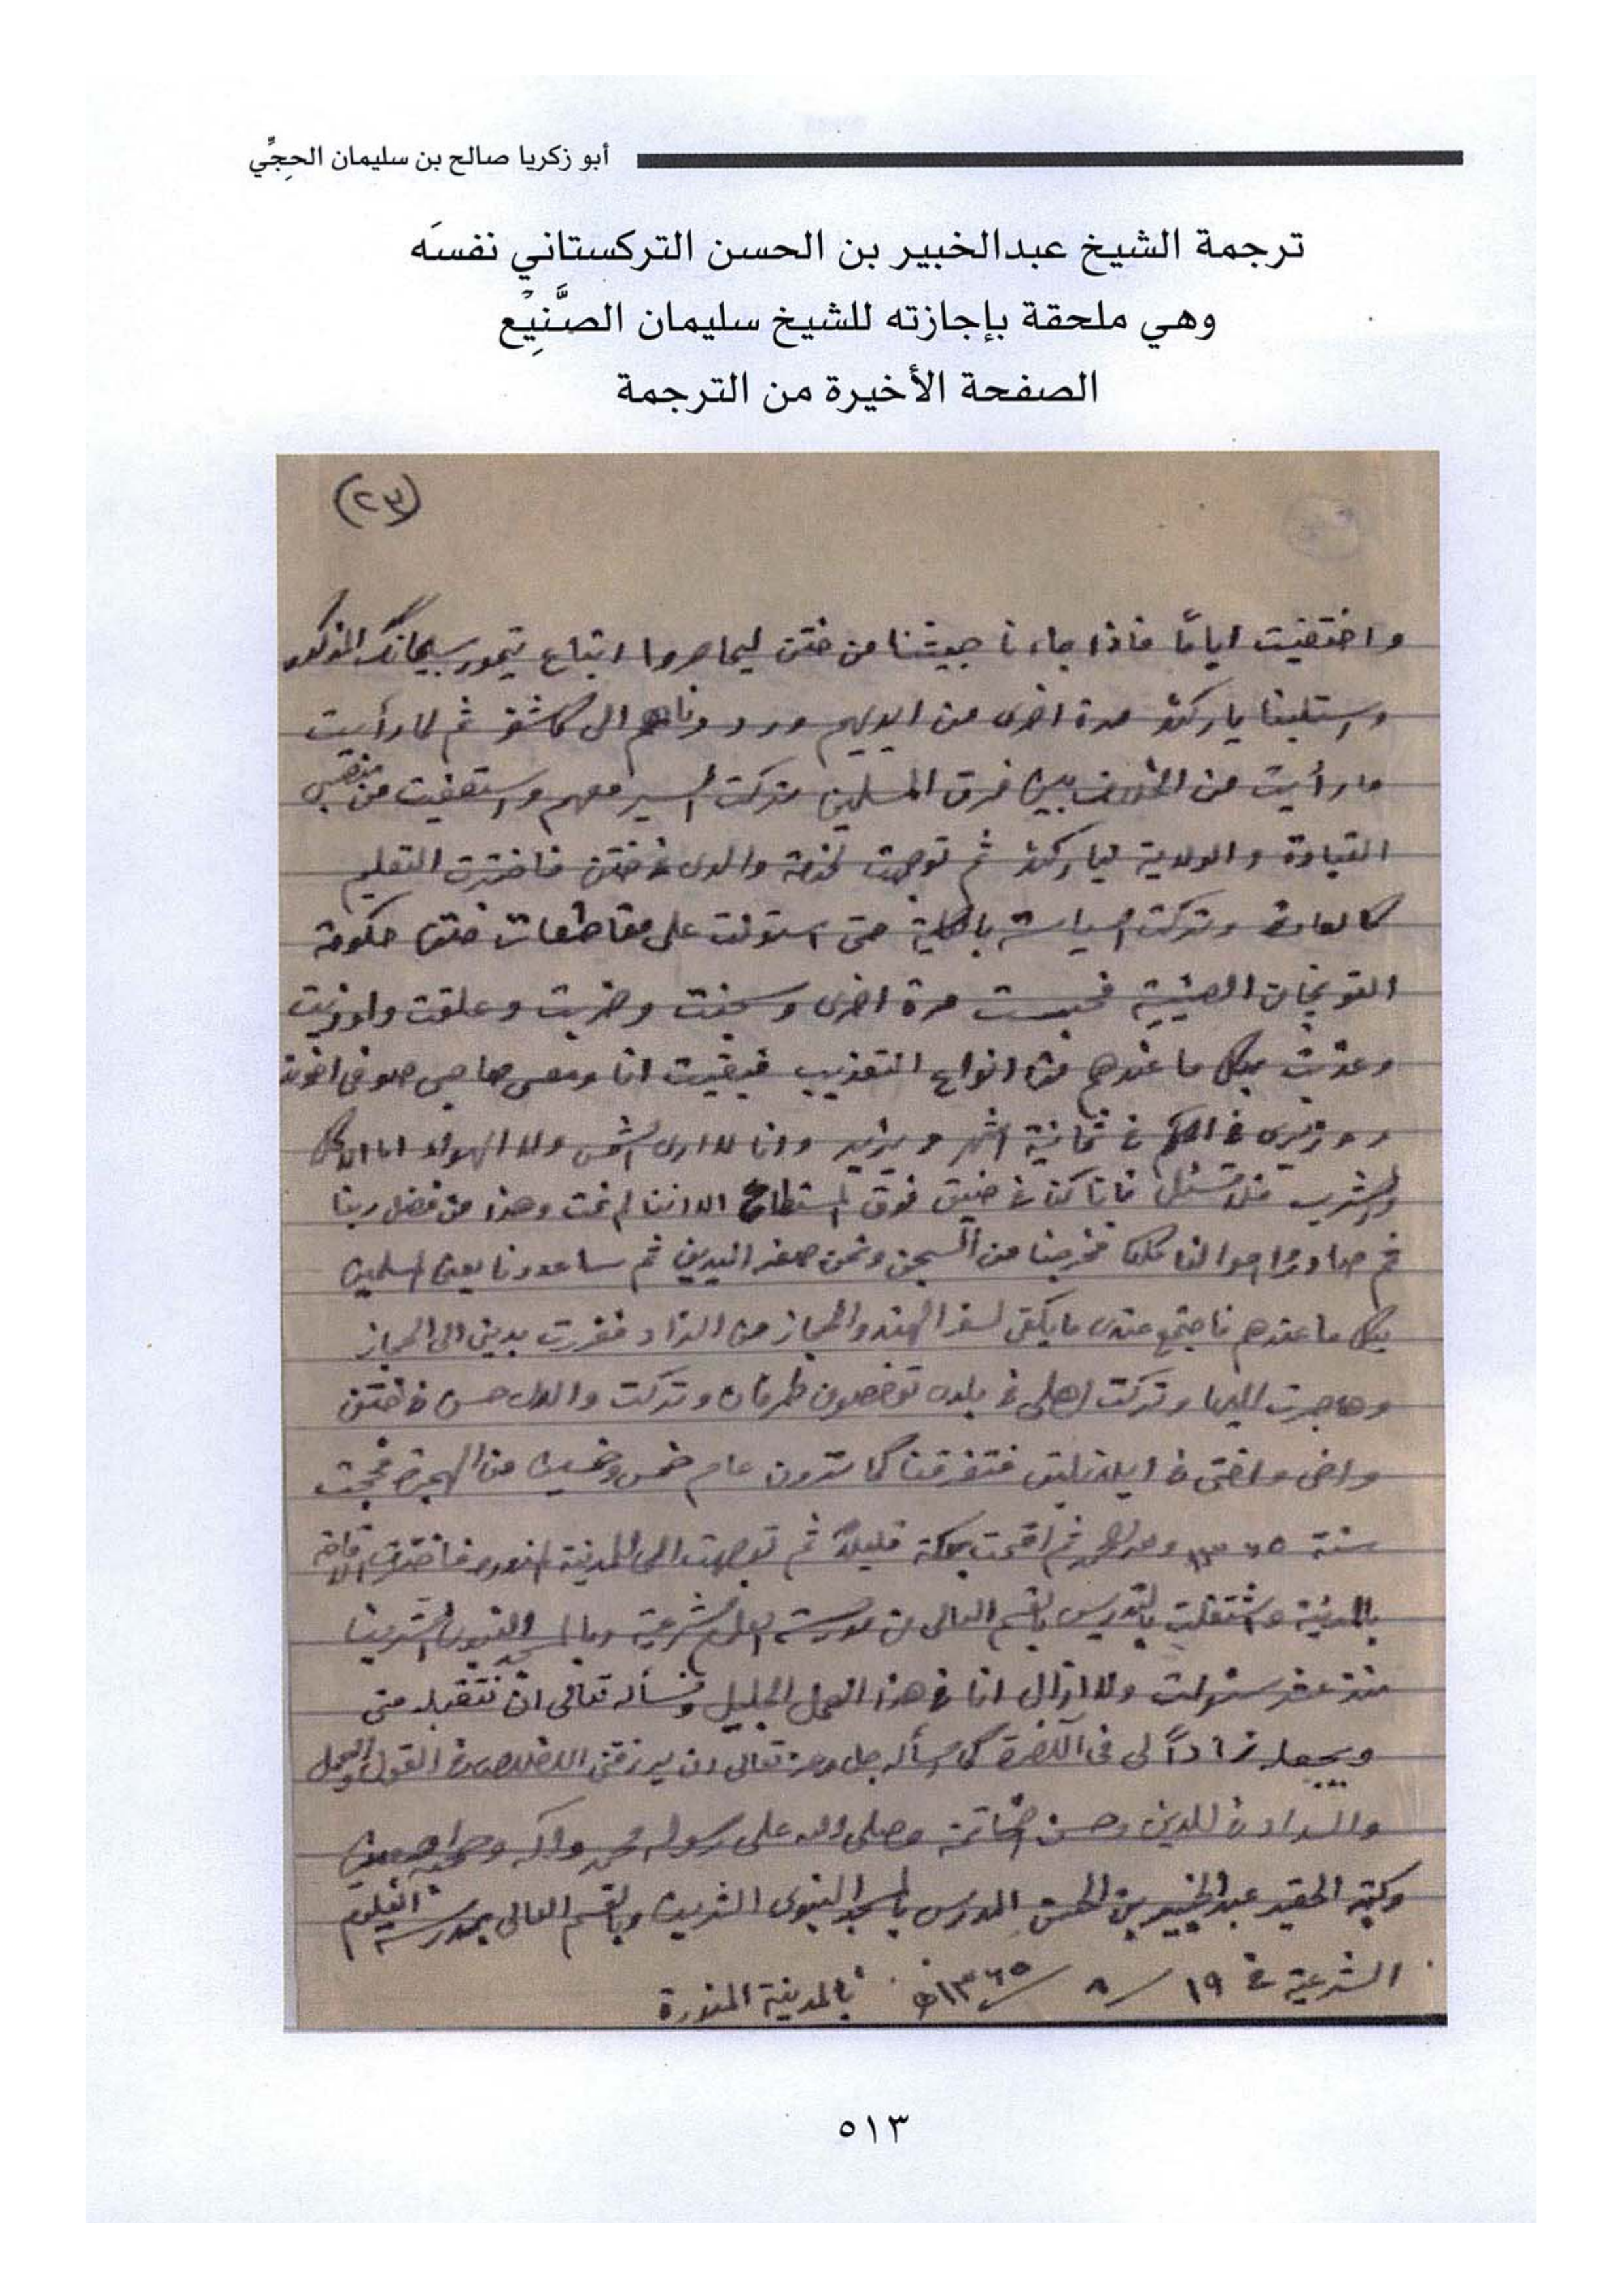 أبو زكريا صالح بن سليمان الحِجِّي
ترجمة الشيخ عبدالخبير بن الحسن التركستاني نفسَه
وهي ملحقة بإجازته للشيخ سليمان الصَّنِيْع
الصفحة الأخيرة من الترجمة
(٢٣)
واختفيت اياماً فاذا جاءنا جيشنا من ختن ليحاصروا اتباع تيمور سيجانك المذكور
واستلبنا ياركند مرة اخرى من ايديهم ورددناهم الى كاشغر ثم لما رأيت
ما رأيت من الخلاف بين فرق المسلمين تركت السير معهم واستعفيت من منصبي
القيادة والولاية لياركند ثم توجهت لخدمة والدى فى ختن فاخترت التعليم
كالعادة وتركت السياسة بالكلية حتى استولت على مقاطعات ختن حكومة
التونجان الصينية فحبست مرة اخرى وسجنت وضربت وعلقت واوذيت
وعذبت بكل ما عندهم من انواع التعذيب فبقيت انا ومعى صاحبى صوفى اخوند
ووزيرى فى الحكم فى ثمانية اشهر ويزيد وانا لا ارى الشمس ولا الهواء اما الاكل
والشرب فلا تسئل فانا كنا فى ضيق فوق المستطاع الا اننا لم نمت وهذا من فضل ربنا
ثم صادروا اموالنا كلها فخرجنا من السجن ونحن صفر اليدين ثم ساعدونا بعض المسلمين
بكل ما عندهم فاجتمع عندى ما يكفى لسفر الهند والحجاز من الزاد ففررت بدينى الى الحجاز
وهاجرت اليها وتركت اهلى فى بلدة وتركت والدى حسن فى ختن
واخى واختى فى فتفرقنا كما ترون عام خمس وخمسين من الهجرة فحججت
سنة ثم اقمت بمكة قليلاً ثم توجهت الى المدينة المنورة فاخترت الاقامة
بالمدينة واشتغلت بالتدريس بالقسم العالى من مدرسة العلوم الشرعية وبالمسجد النبوى الشريف
منذ عشر سنوات ولا ازال انا فى هذا العمل الجليل ونسأله تعالى ان يتقبله منى
ويجعله زاداً لى فى الآخرة كما اسأله جل وعز تعالى ان يرزقنى الاخلاص فى القول والعمل
والسداد فى الدين وحسن الخاتمة وصلى الله على رسوله محمد وآله وصحبه اجمعين
وكتبه الحقير عبدالخبير بن الحسن المدرس بالمسجد النبوى الشريف وبالقسم العالى بمدرسة العلوم
الشرعية فى ١٩/٨/١٣٦٥هـ بالمدينة المنورة
٥١٣